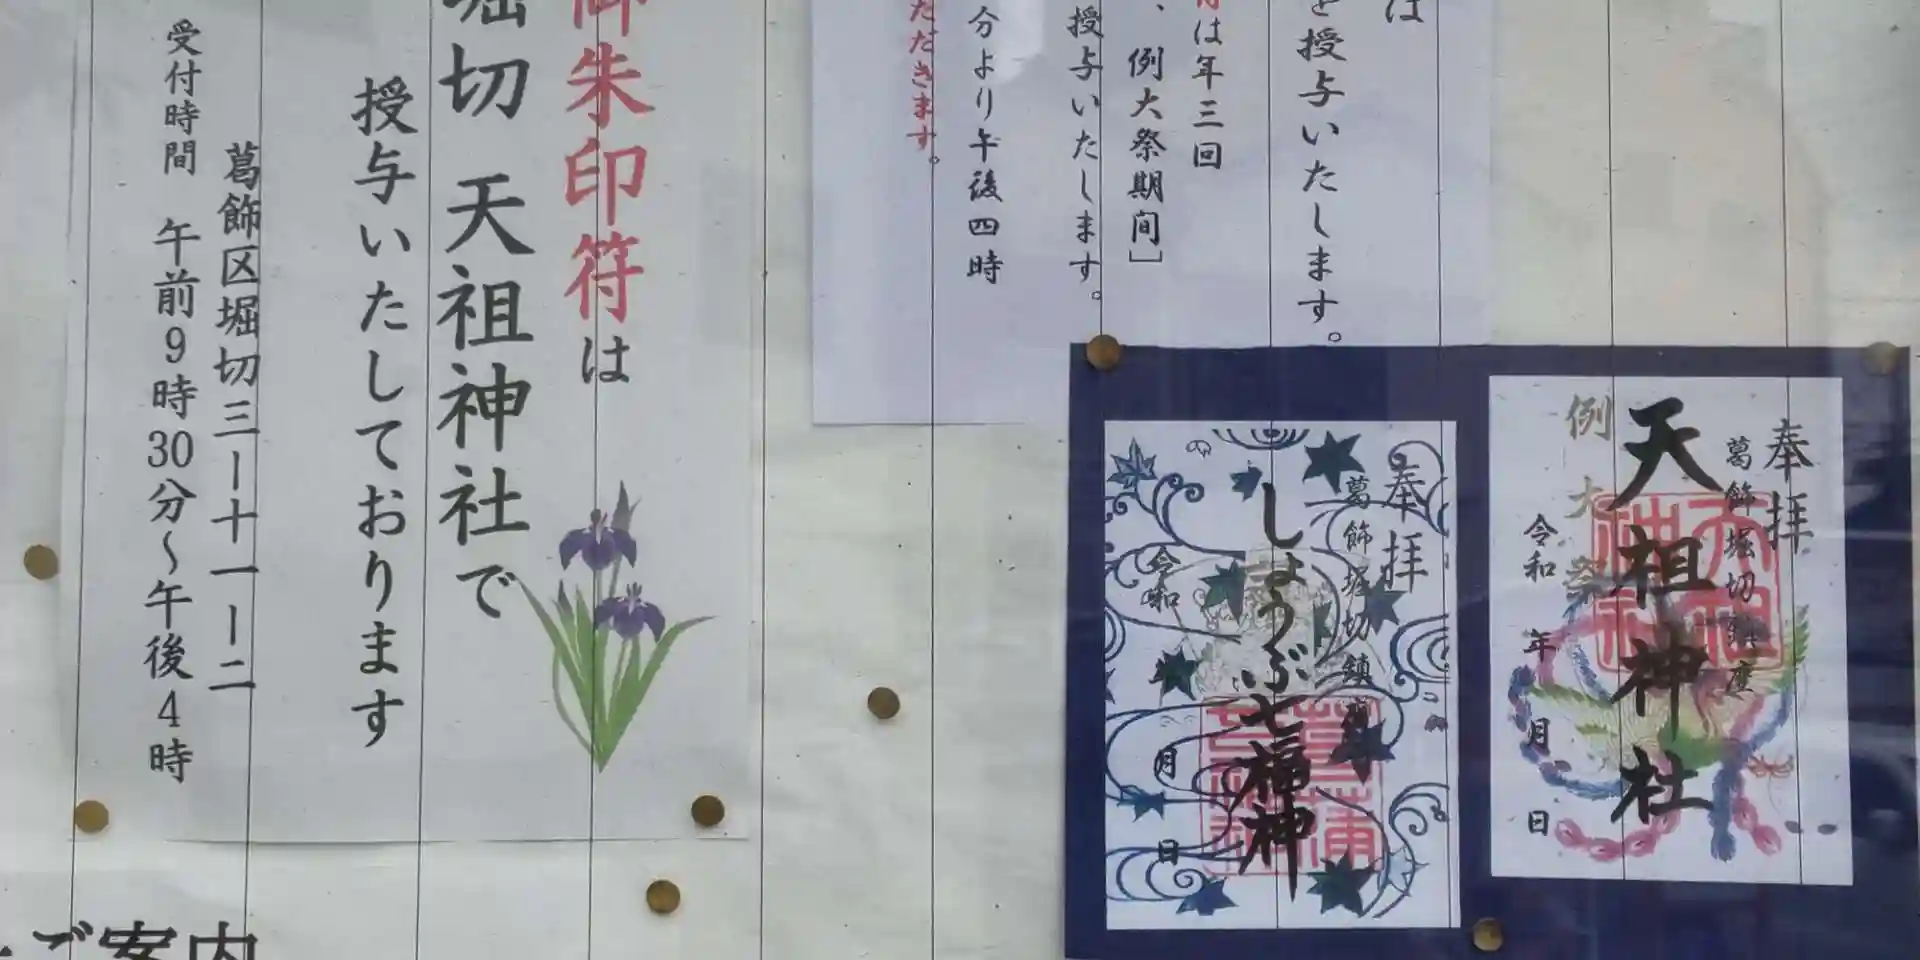 は
を授与いたします。
は年三回
、例大祭期間］
授与いたします。
分より午後四時
ただきます。
御朱印符は
堀切 天祖神社で
授与いたしております
葛飾区堀切三ー十一ー二
受付時間 午前9時30分～午後4時
奉拝
葛飾堀切鎮座
天祖神社
例大祭
令和 年 月 日
奉拝
葛飾堀切鎮座
しょうぶ七福神
令和 月 日
ご案内